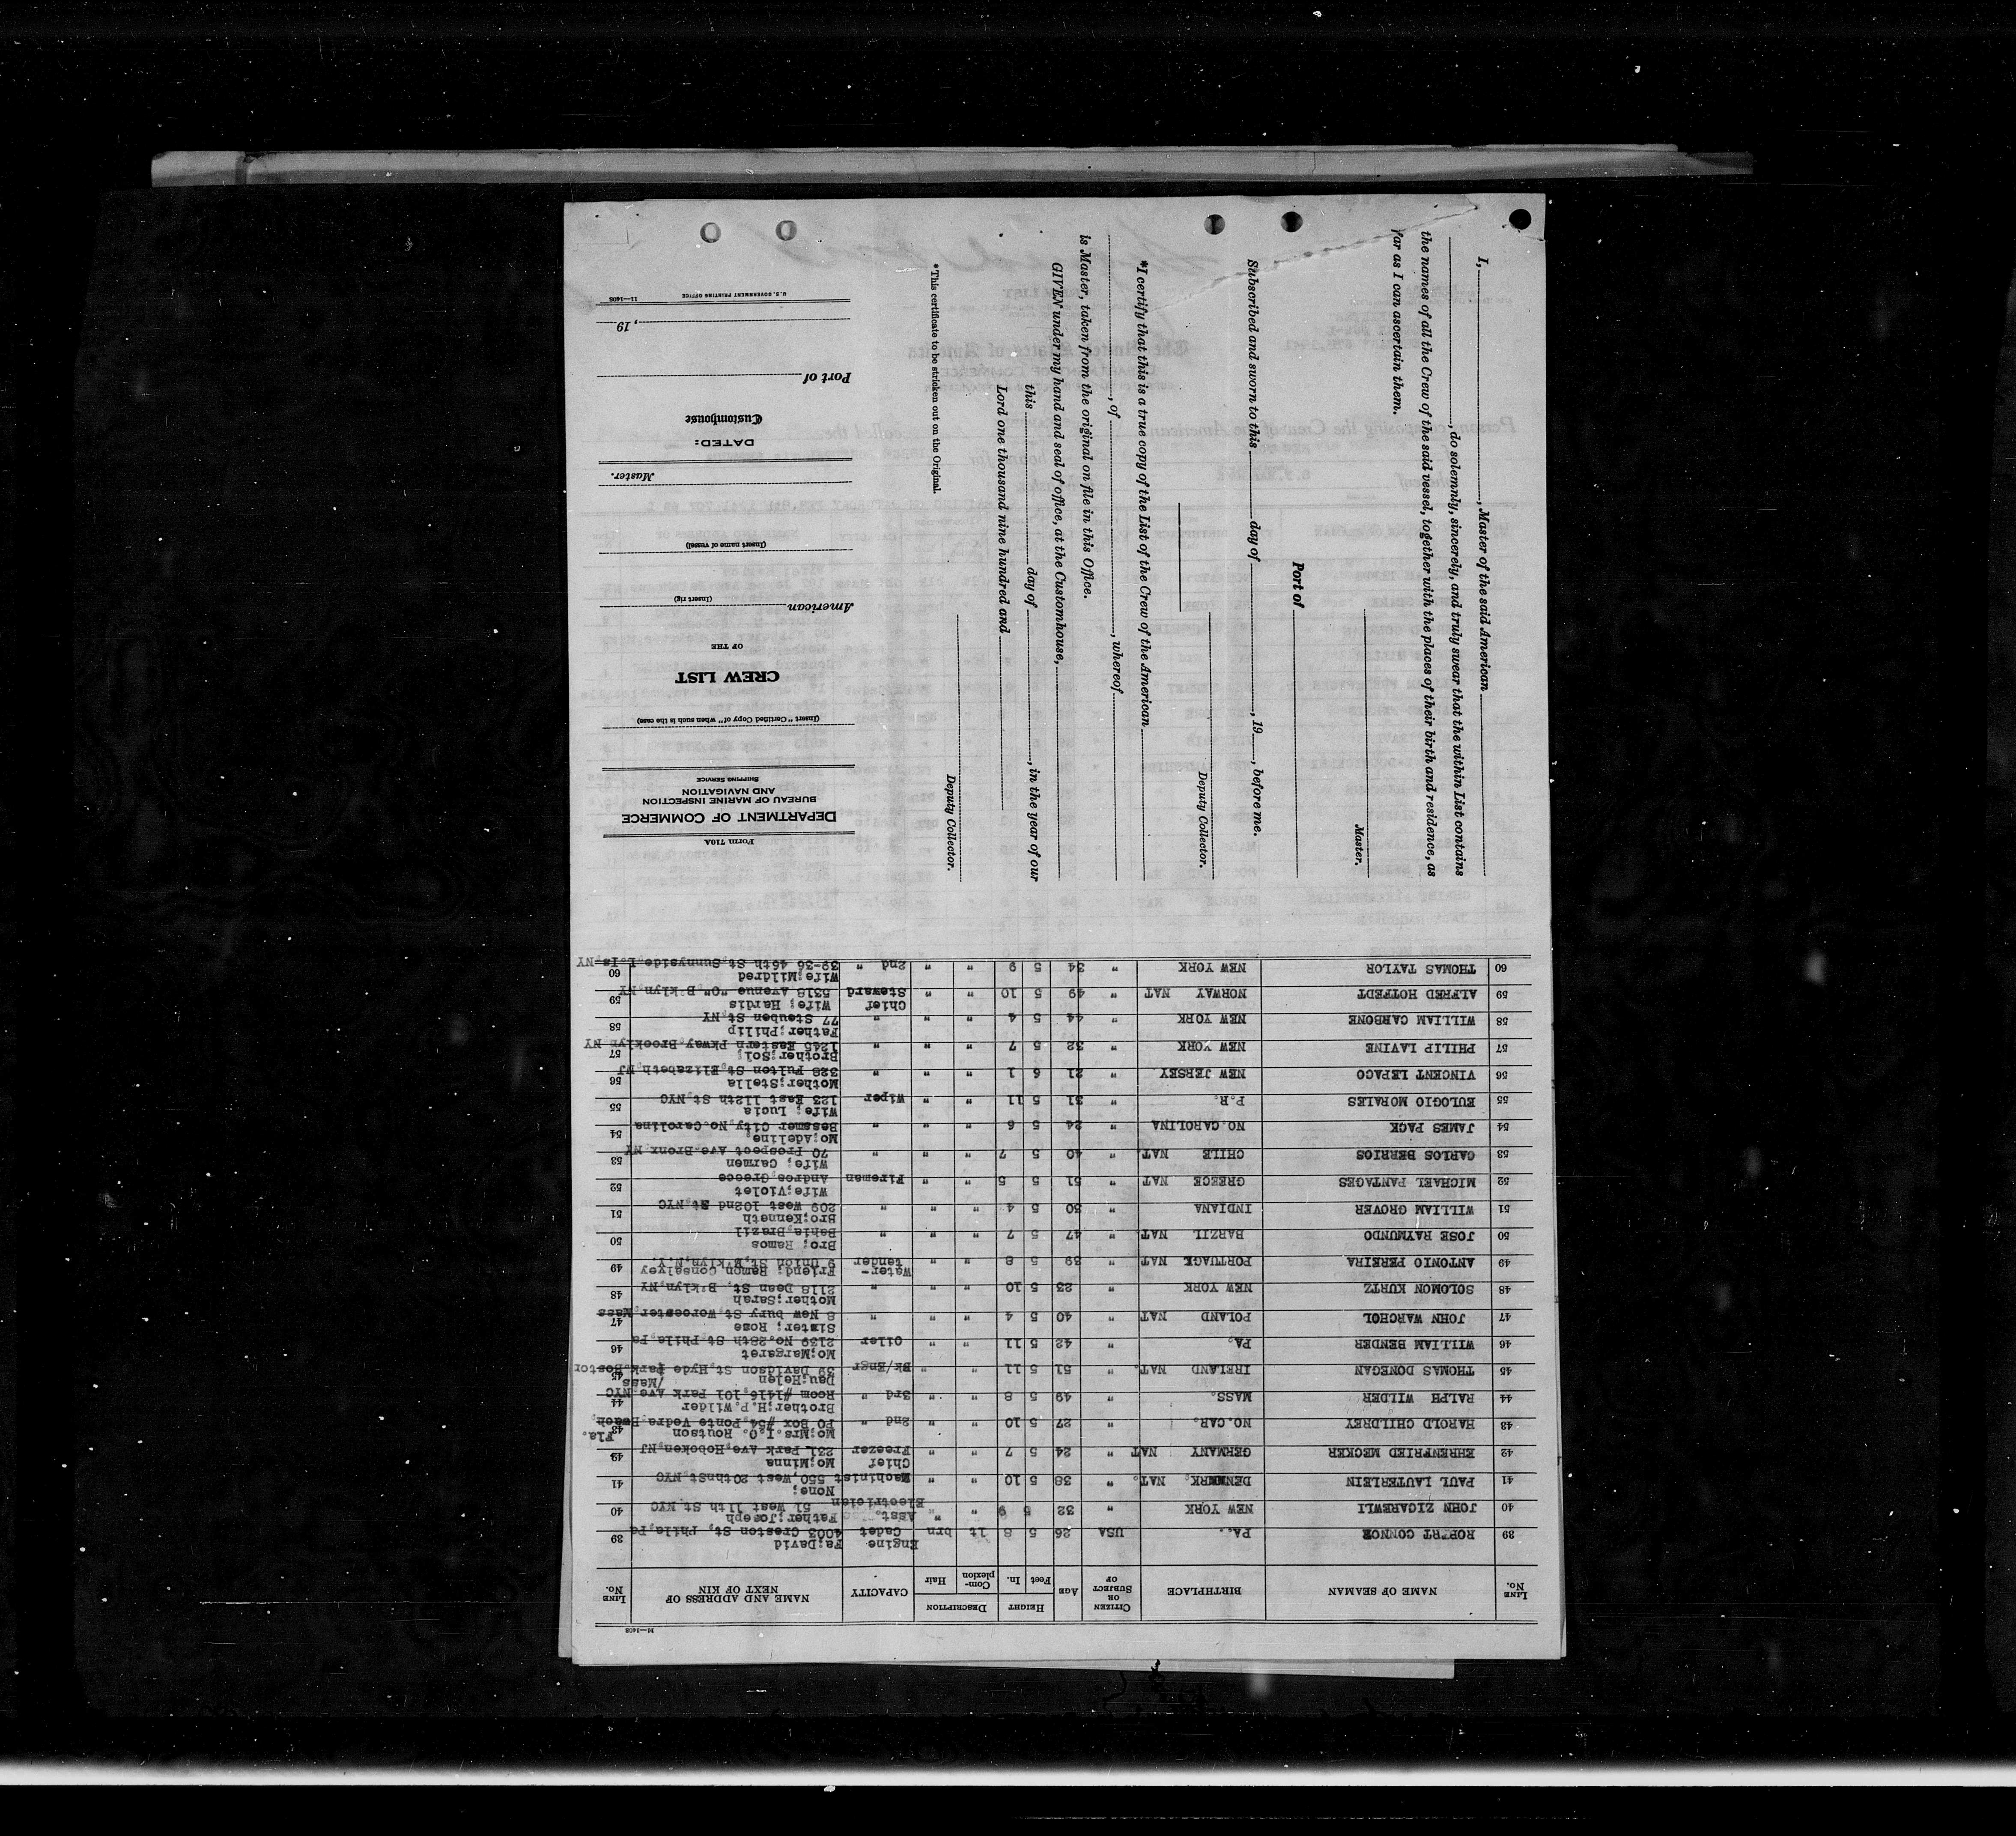 M—1408
LINE No. NAME OF SEAMAN BIRTHPLACE CITIZEN OR SUBJECT OF AGE HEIGHT Feet In. DESCRIPTION Complexion Hair CAPACITY NAME AND ADDRESS OF NEXT OF KIN LINE No.
39 ROBERT CONNOR PA. USA 26 5 8 lt brn Engine Cadet Fa;David 4003 Creston St, Phila,Pa 39
40 JOHN ZIGAREWLI NEW YORK " 32 5 9 " " Asst. Electrician Father;Joseph 51 West 11th St NYC 40
41 PAUL LAUTERLEIN DENMARK NAT. " 38 5 10 " " Machinist None; 550,West 20thnSt,NYC 41
42 EHRENFRIED MECKER GERMANY NAT " 24 5 7 " " Chief Freezer Mo;Minna 231 Park Ave,Hoboken,NJ 42
43 HAROLD CHILDREY NO.CAR. " 27 5 10 " " 2nd " Mo;Mrs.I.O. Routson PO Box #54,Ponte Vedra,Beach, Fla. 43
44 RALPH WILDER MASS. " 49 5 8 " " 3rd " Brother;H.P.Wilder Room #1416,101 Park Ave NYC 44
45 THOMAS DONEGAN IRELAND NAT. " 51 5 11 " " Bk/Engr Dau;Helen 39 Davidson St,Hyde Park,Boston /Mass 45
46 WILLIAM BENDER PA. " 42 5 11 " " Oiler Mo;Margaret 2139 No.28th St Phila Pa 46
47 JOHN WARCHOL POLAND NAT " 40 5 4 " " " Sister; Rose 8 New bury St,Worcester,Mass 47
48 SOLOMON KURTZ NEW YORK " 23 5 10 " " " Mother;Sarah 2118 Dean St, B'klyn,NY 48
49 ANTONIO PEREIRA PORTUAGL NAT " 39 5 8 " " Water-tender Friend; Ramon Consalvey 9 Union St,B'klyn,N.Y. 49
50 JOSE RAYMUNDO BARZIL NAT " 47 5 7 " " " Bro; Ramos Bahia,Brazil 50
51 WILLIAM GROVER INDIANA " 30 5 4 " " " Bro;Kenneth 209 West 102nd St,NYC 51
52 MICHAEL PANTAGES GREECE NAT " 51 5 5 " " Fireman Wife;Violet Andros,Greece 52
53 CARLOS BERRIOS CHILE NAT. " 40 5 7 " " " Wife; Carmen 70 Prospect Ave-Bronx NY 53
54 JAMES PACK NO.CAROLINA " 24 5 6 " " " Mo;Adeline. Bessmer City,No.Carolina 54
55 EULOGIO MORALES P.R. " 31 5 11 " " Wiper Wife; Lucia 123 East 112th St,NYC 55
56 VINCENT LEPACO NEW JERSEY " 21 6 1 " " " Mother;Stella 328 Fulton St Elizabeth NJ 56
57 PHILIP LAVINE NEW YORK " 32 5 7 " " " Brother;Sol; 1245 Eastern Pkway Brooklyn NY 57
58 WILLIAM CARBONE NEW YORK " 44 5 4 " " " Father;Philip 77 Steuben St,NY 58
59 ALFRED HOTFEDT NORWAY NAT " 49 5 10 " " Chief Steward Wife; Hardis 5318 Avenue "O" B'klyn NY 59
60 THOMAS TAYLOR NEW YORK " 34 5 9 " " 2nd " Wife;Mildred 39-36 46th St,Sunnyside L.Is NY 60
I, , Master of the said American
, do solemnly, sincerely, and truly swear that the within List contains
the names of all the Crew of the said vessel, together with the places of their birth and residence, as
far as I can ascertain them.
Master.
Port of
Subscribed and sworn to this day of , 19 , before me.
Deputy Collector.
*I certify that this is a true copy of the List of the Crew of the American
, of , whereof
is Master, taken from the original on file in this Office.
GIVEN under my hand and seal of office, at the Customhouse,
this day of , in the year of our
Lord one thousand nine hundred and
Deputy Collector.
*This certificate to be stricken out on the Original.
Form 710A
DEPARTMENT OF COMMERCE
BUREAU OF MARINE INSPECTION
AND NAVIGATION
SHIPPING SERVICE
(Insert "Certified Copy of" when such is the case)
CREW LIST
OF THE
American
(Insert rig)
(Insert name of vessel)
Master.
DATED:
Customhouse
Port of
, 19
U.S. GOVERNMENT PRINTING OFFICE 11—1408